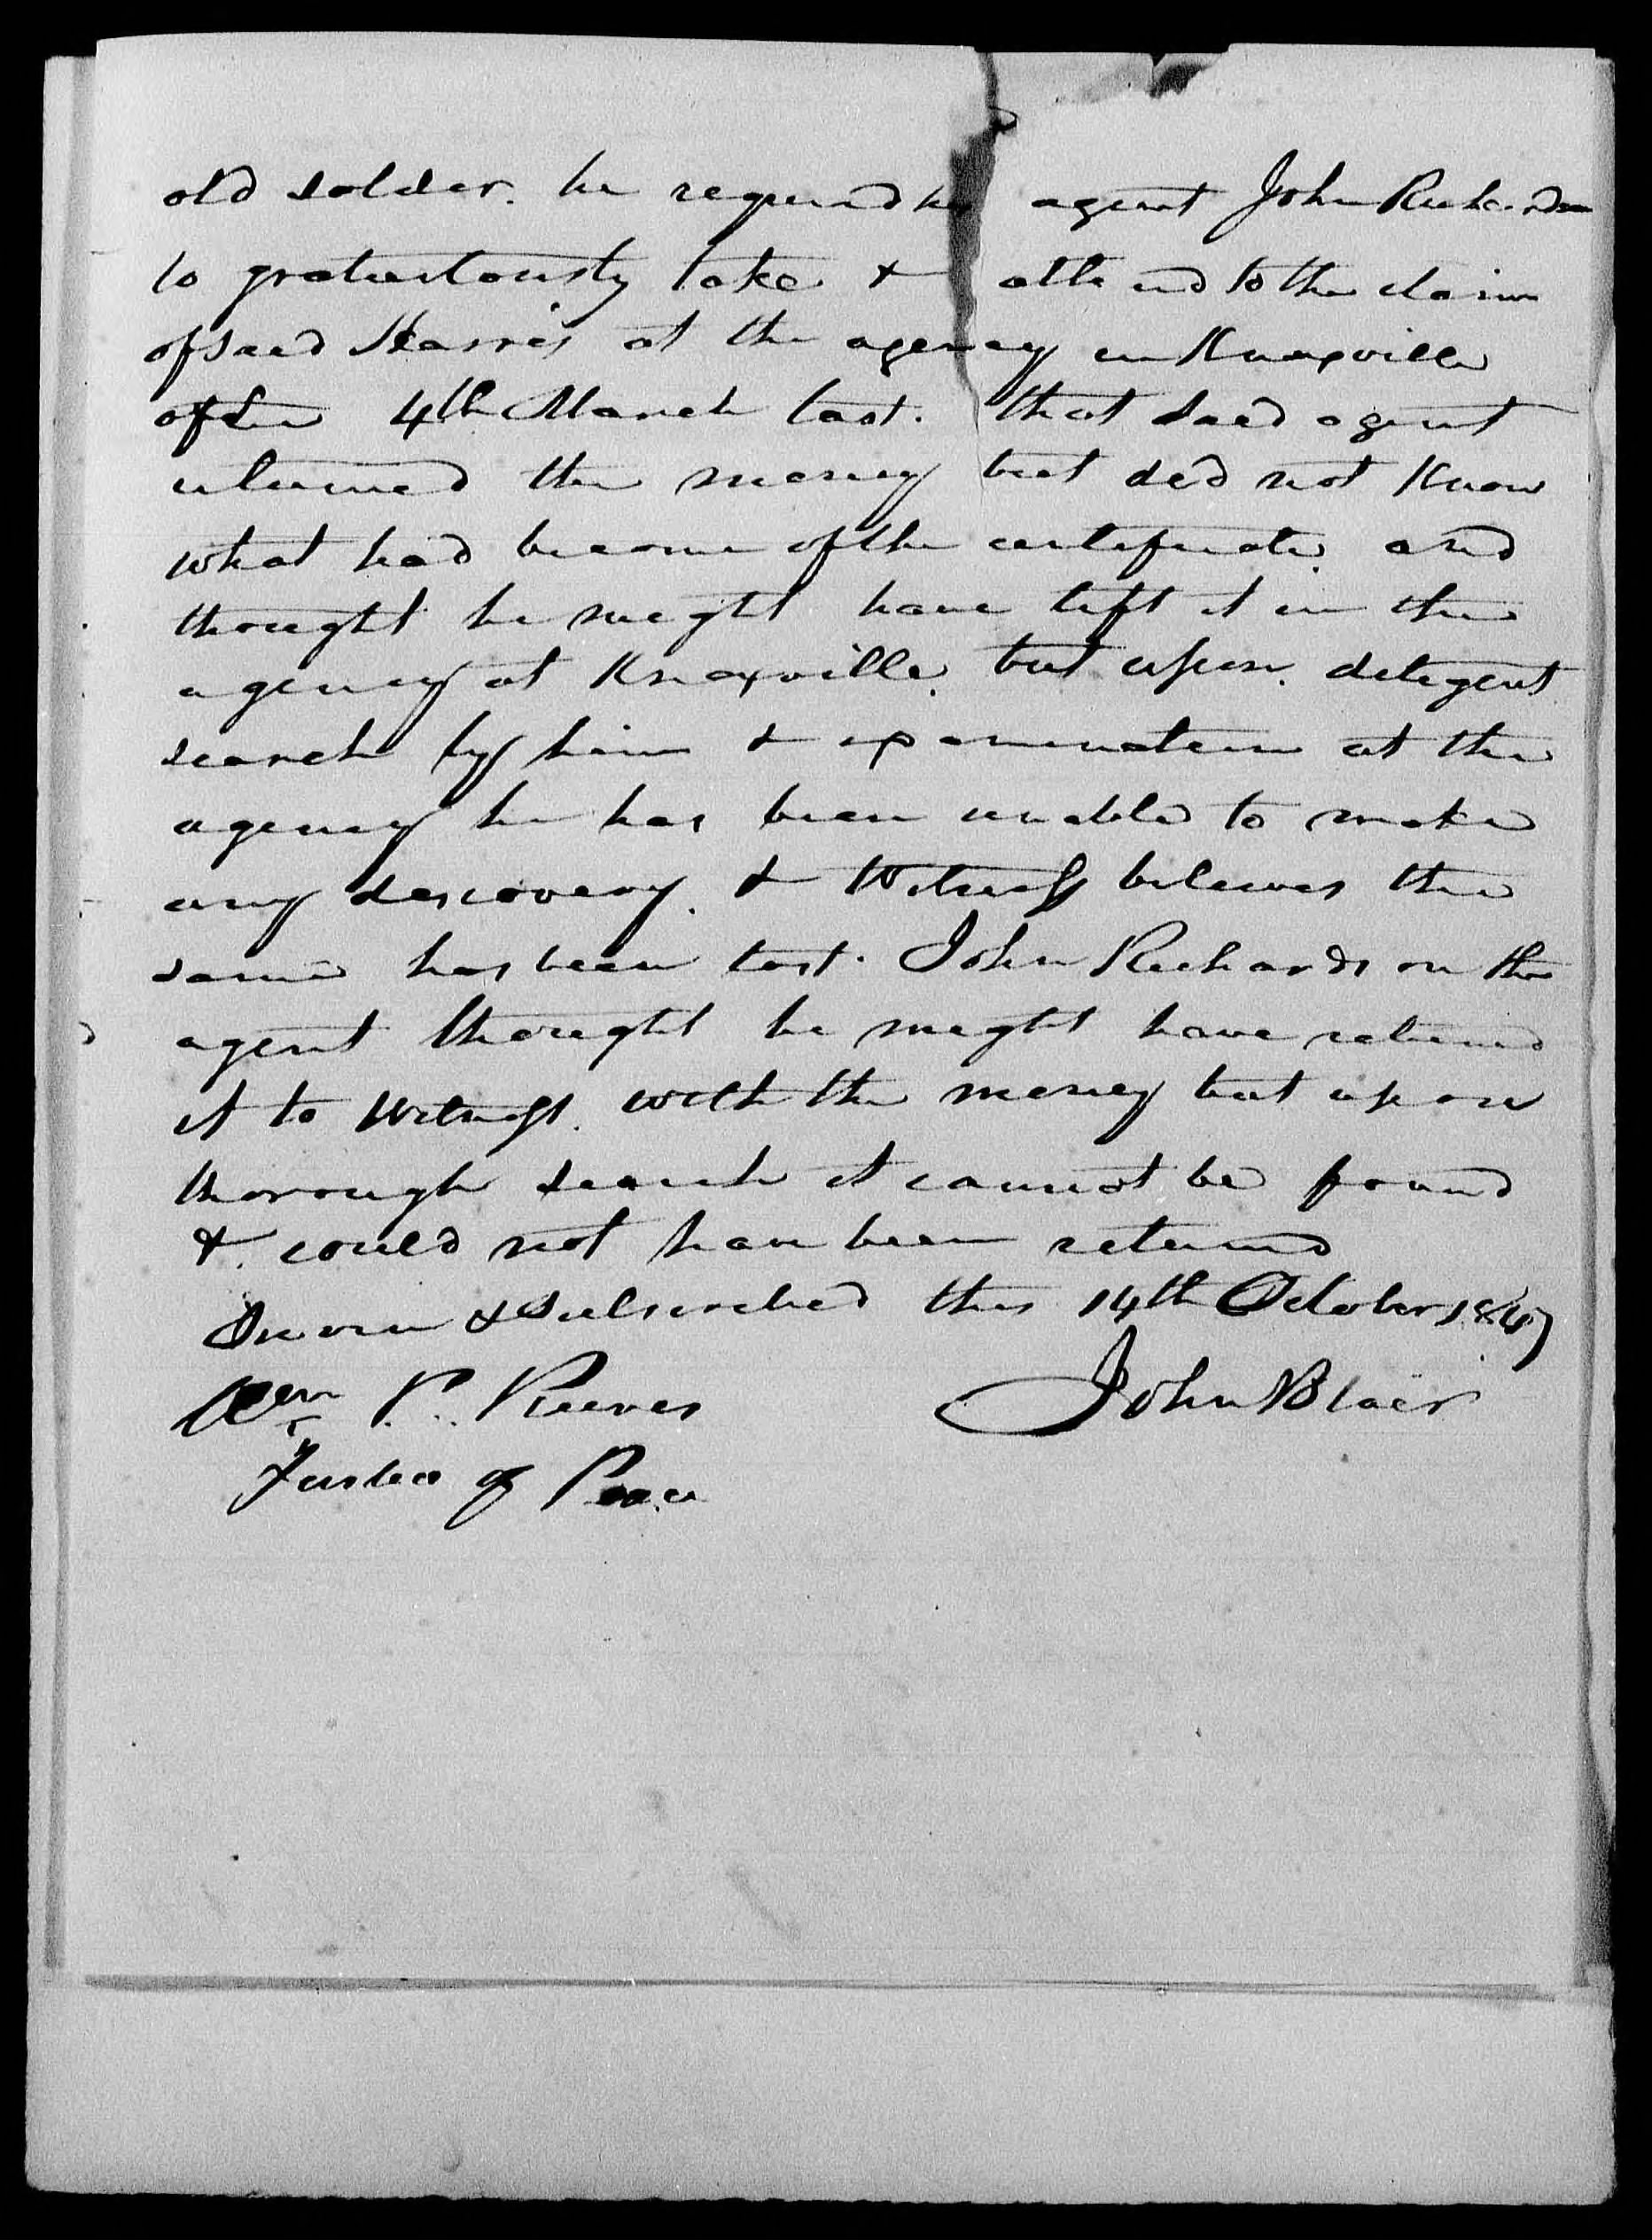 old soldier. he required his agent John Richardson
to gratuitously take & attend to the claim
of said Harris at the agency in Knoxville
after 4th March last. that said agent
returned the money but did not know
what had become of the certificate. and
thought he might have left it in the
agency at Knoxville. but upon. diligent
search by him & examination at the
agency he has been unable to make
any discovery. & Witness believes the
same has been lost. John Richardson the
agent thought he might have returned
it to Witness. with the money but upon
thorough search it cannot be found
&. could not have been returned
Sworn & Subscribed this 14th October 1847
Wm P. Reeves John Blair
Justice of Peace